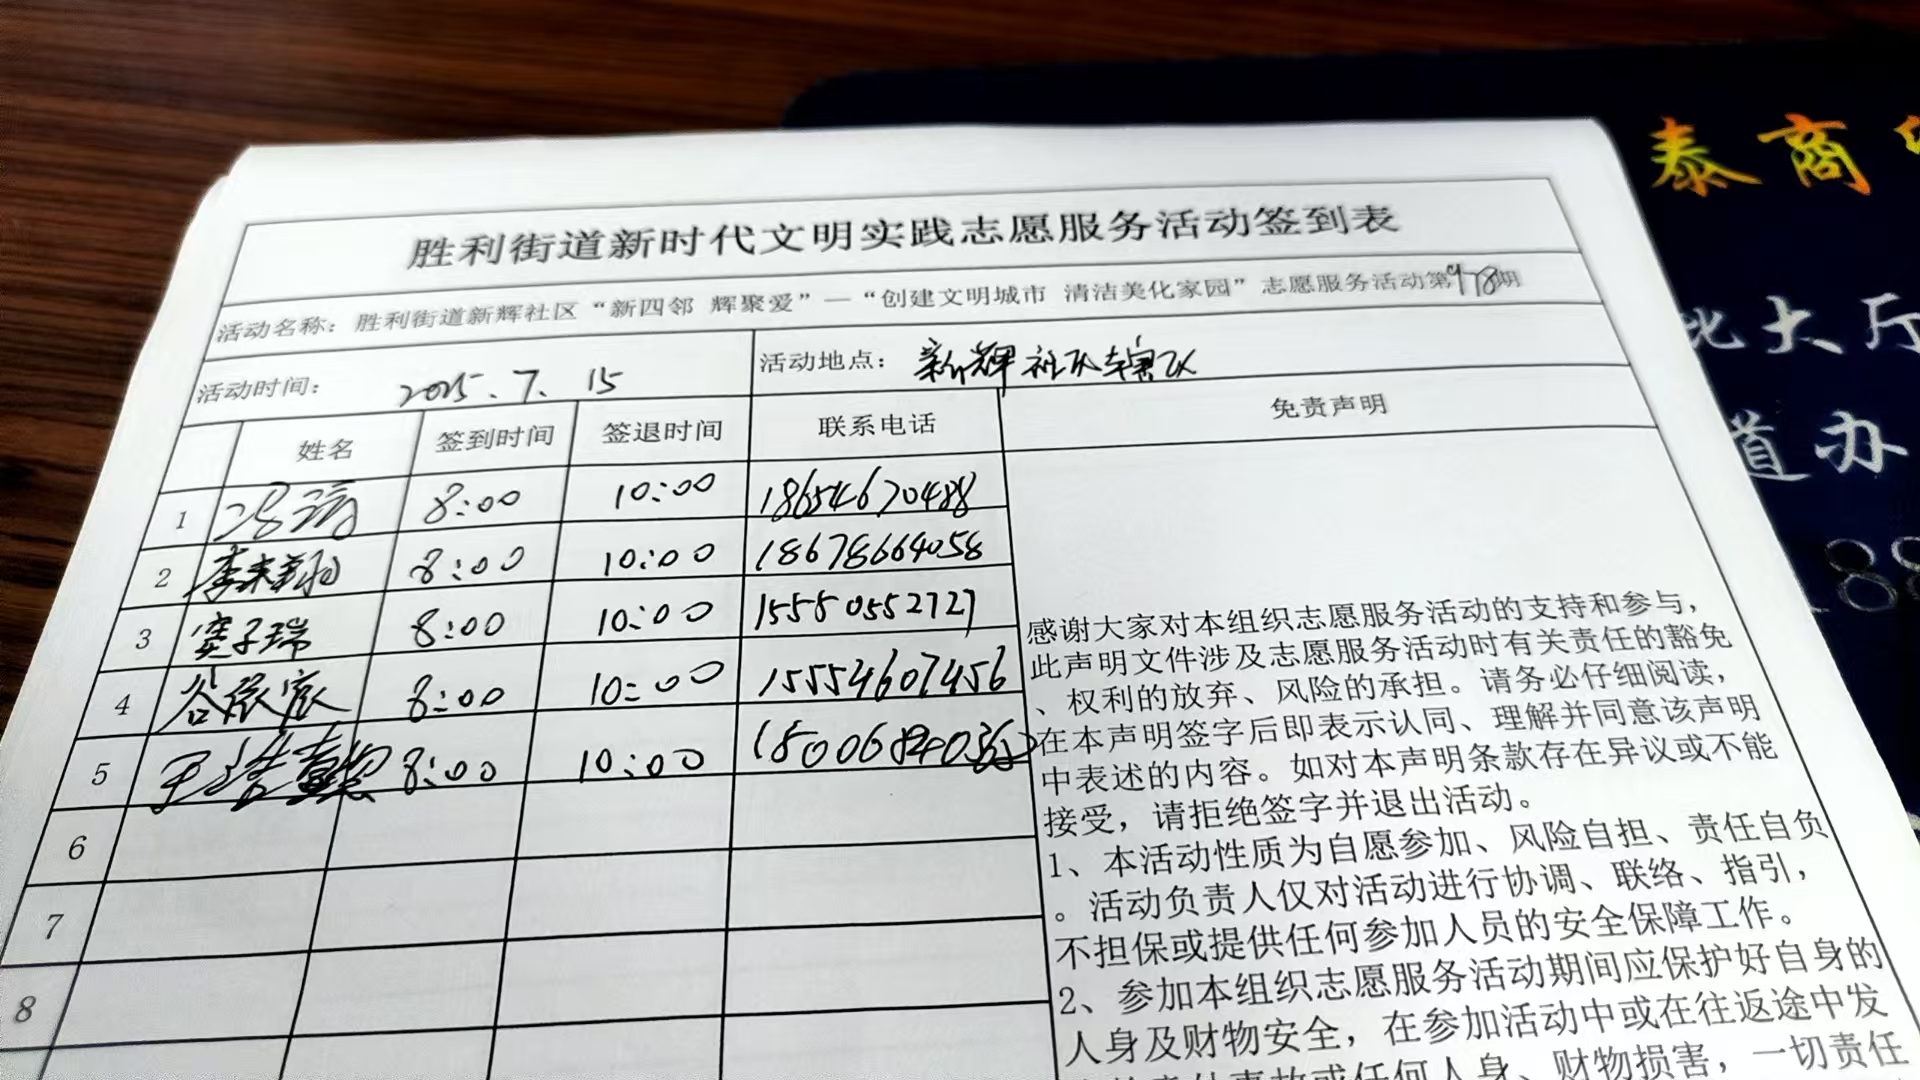 胜利街道新时代文明实践志愿服务活动签到表
活动名称：胜利街道新辉社区“新四邻 辉聚爱”—“创建文明城市 清洁美化家园”志愿服务活动第978期
活动时间： 2025.7.15 活动地点： 新辉社区辖区
姓名 签到时间 签退时间 联系电话 免责声明
1 8:00 10:00 18654670488
2 8:00 10:00 18678664058
3 窦子瑞 8:00 10:00 15550552727
4 谷依宸 8:00 10:00 15554607456
5 8:00 10:00
6
7
8
感谢大家对本组织志愿服务活动的支持和参与，
此声明文件涉及志愿服务活动时有关责任的豁免
、权利的放弃、风险的承担。请务必仔细阅读，
在本声明签字后即表示认同、理解并同意该声明
中表述的内容。如对本声明条款存在异议或不能
接受，请拒绝签字并退出活动。
1、本活动性质为自愿参加、风险自担、责任自负
。活动负责人仅对活动进行协调、联络、指引，
不担保或提供任何参加人员的安全保障工作。
2、参加本组织志愿服务活动期间应保护好自身的
人身及财物安全，在参加活动中或在往返途中发
事故或任何人身、财物损害，一切责任
泰商
大厅
道办
88